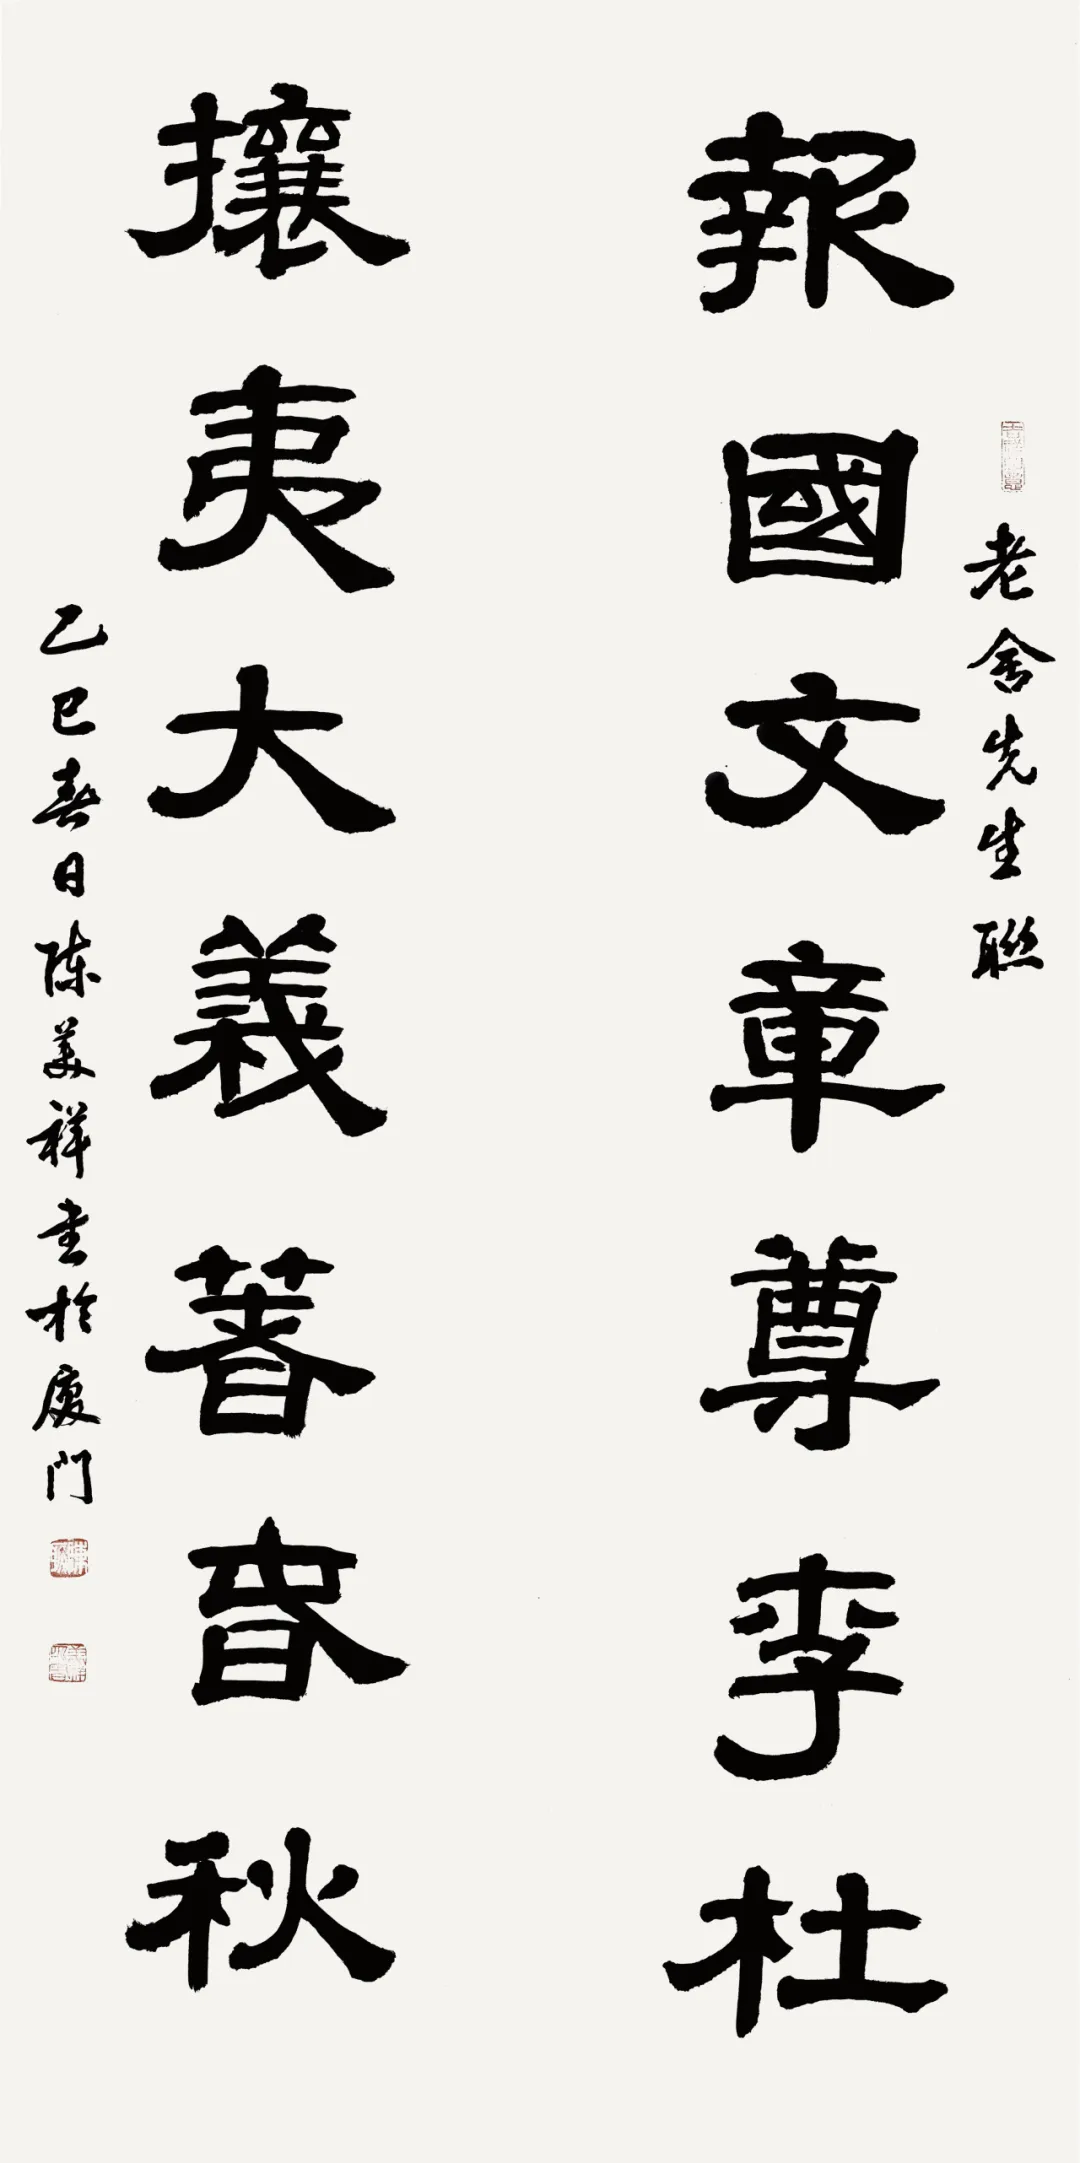 報國文章尊李杜
老舍先生聯
攘夷大義著春秋
乙巳春日陈美祥書於廈門